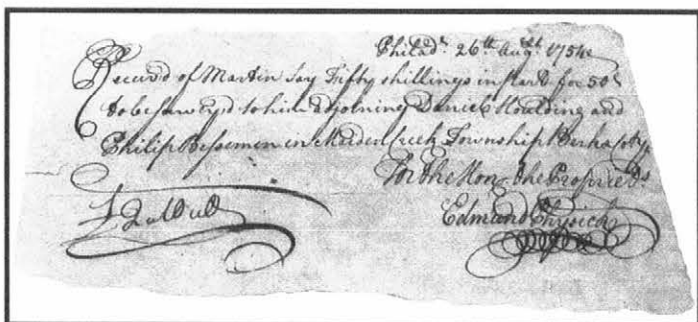 Philad.ᵃ 26.ᵗʰ Aug.ˢᵗ 1754
Receiv'd of Martin Lay Fifty shillings in part for 50
to be survey'd to him adjoining Daniel Houlding and
Philip in Maiden Creek Township Berks Coty.
For the Hon. the Propriet.ʳˢ
Edmund Physick